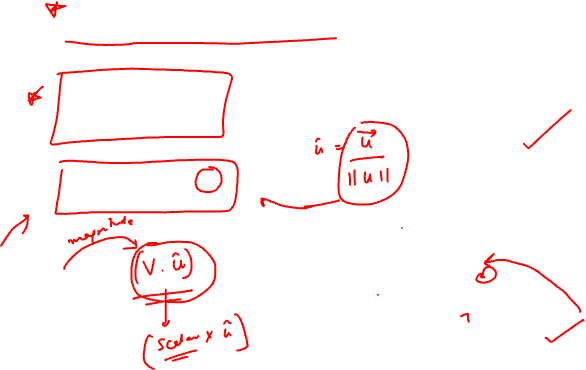 û = u⃗ / ||u||
magnitude
(V. û)
(scalar x û)